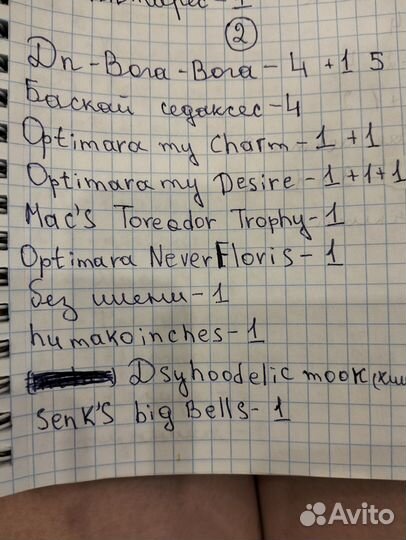 2
Дп-Вога-Вога-4+1 5
Баскай седаксес-4
Optimara my Charm-1+1
Optimara my Desire-1+1+1
Mac's Toreador Trophy-1
Optimara NeverFloris-1
без имени-1
humakoinches-1
Dsyhoodelic moor(хим
senk's big Bells-1
Avito